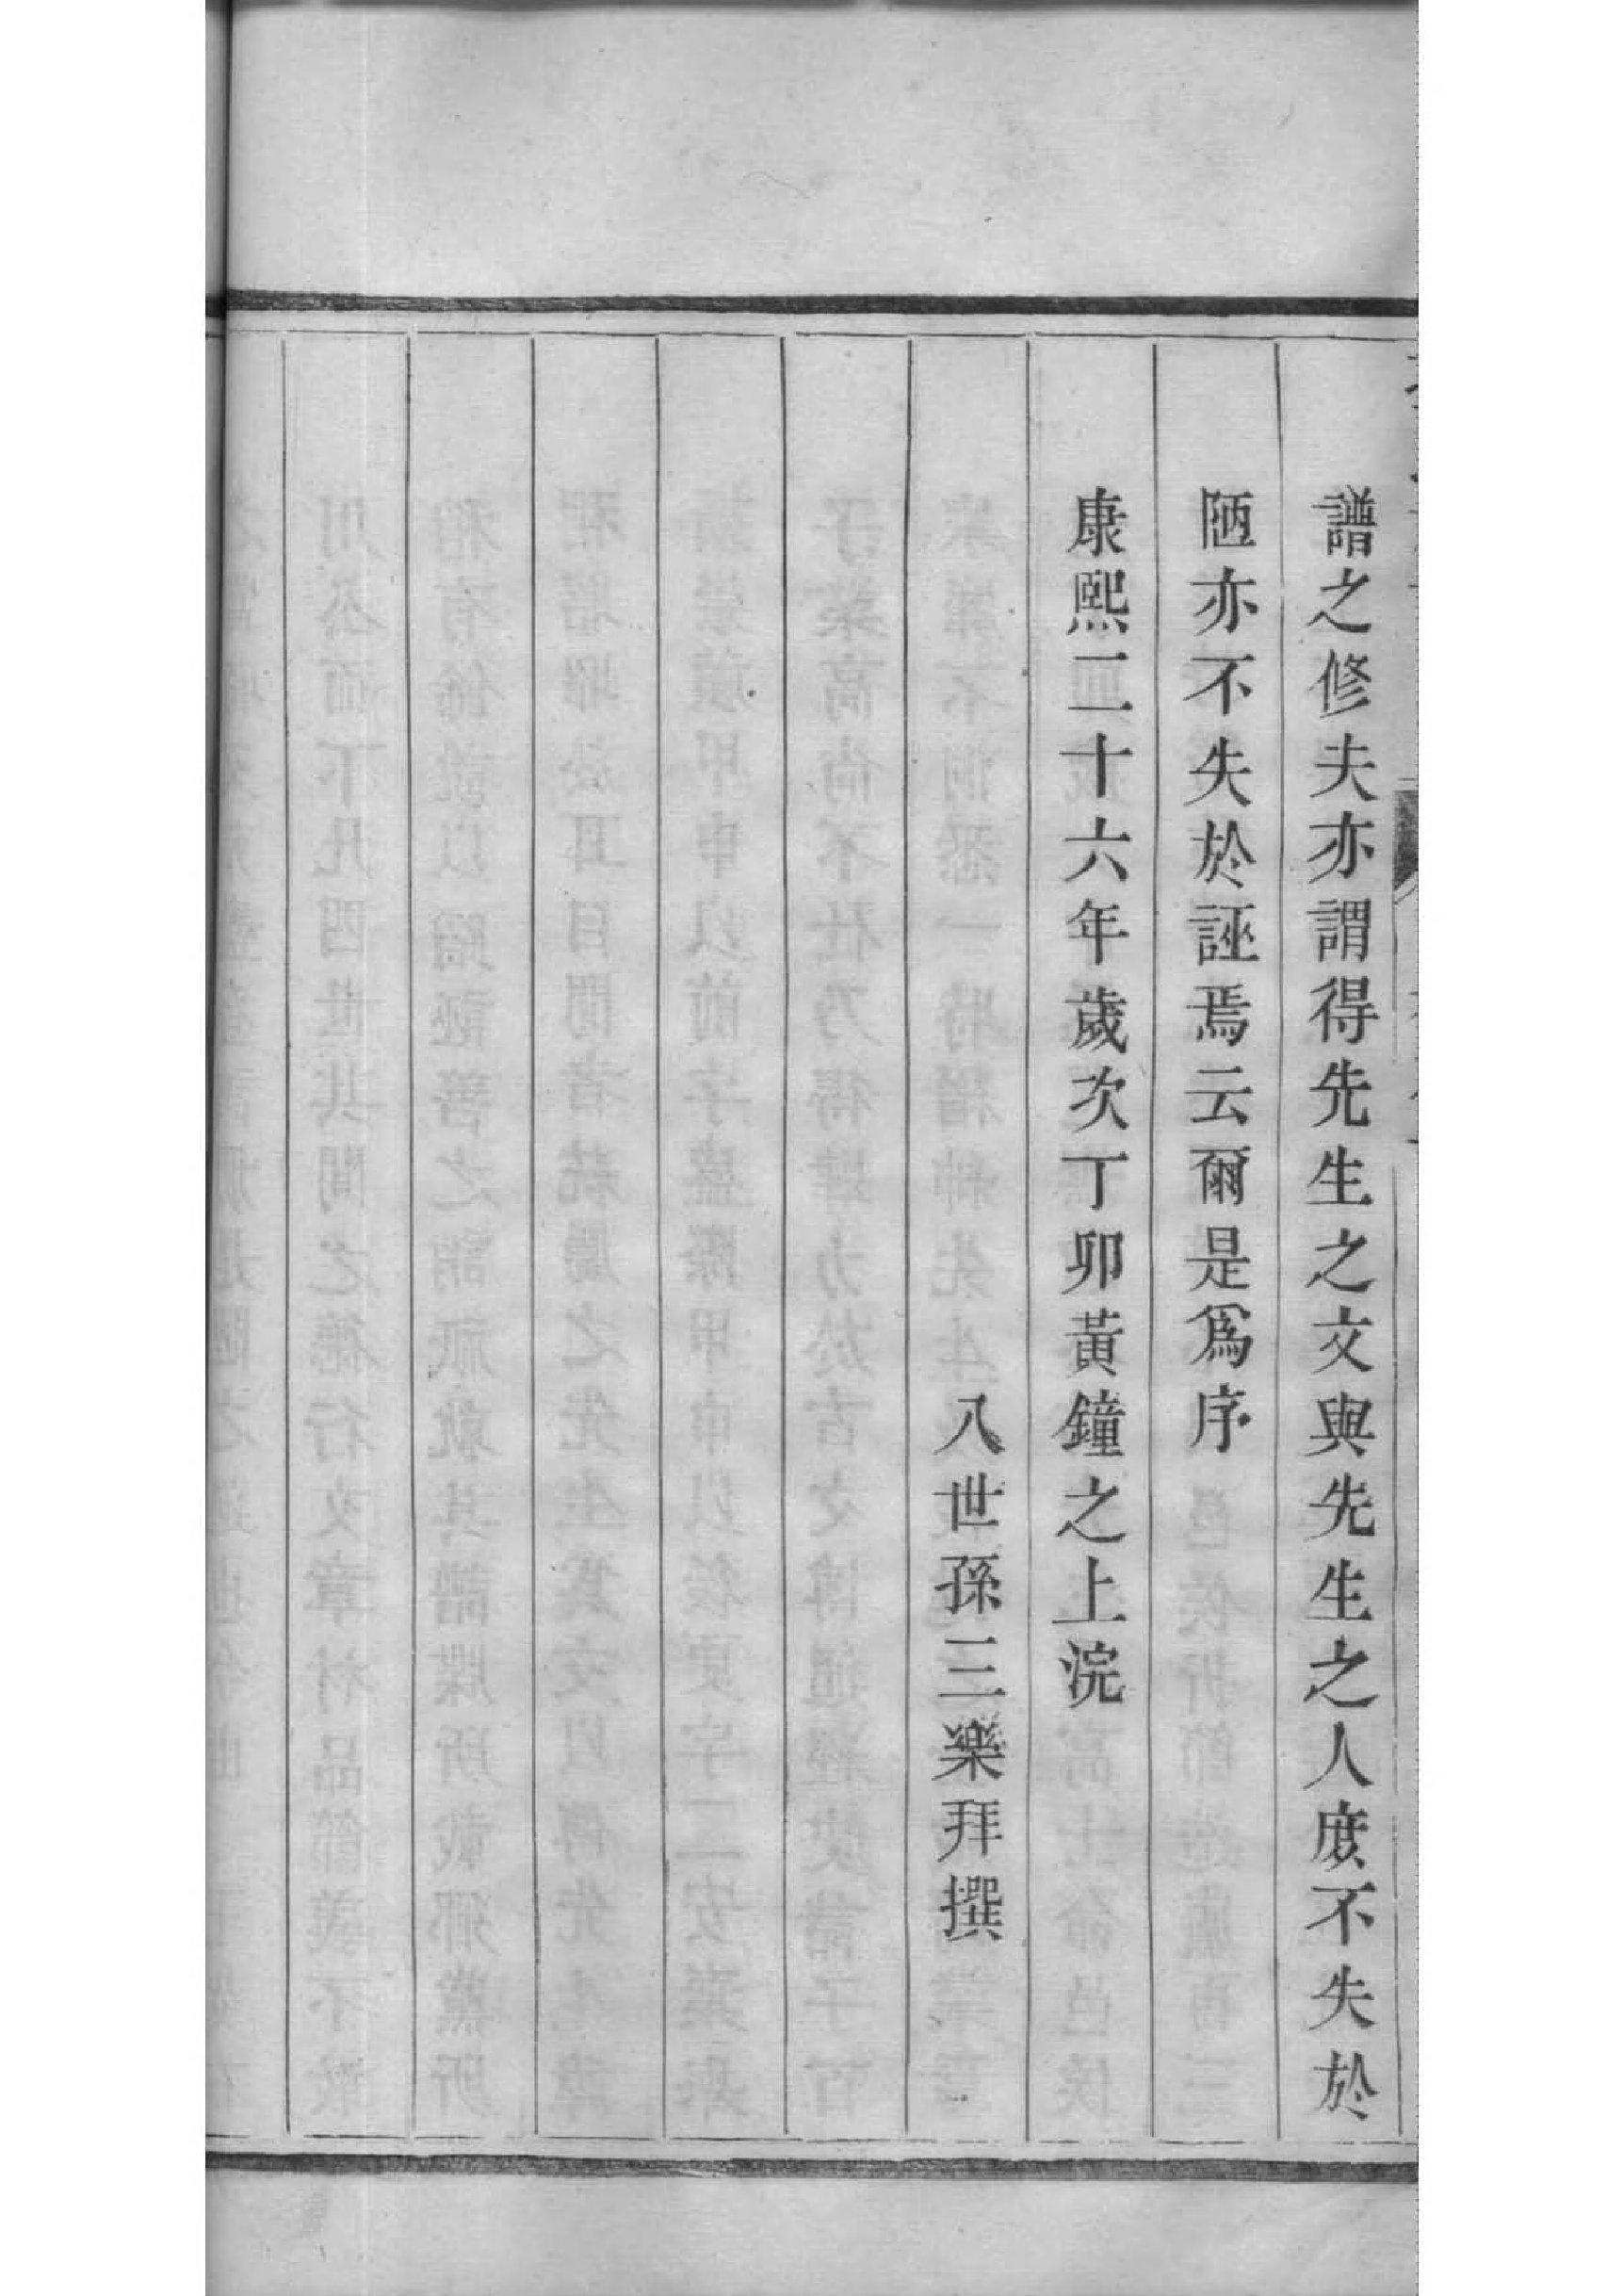 譜之修夫亦謂得先生之文與先生之人庶不失於
陋亦不失於誣焉云爾是爲序
康熙二十六年歲次丁卯黃鐘之上浣
八世孫三樂拜撰